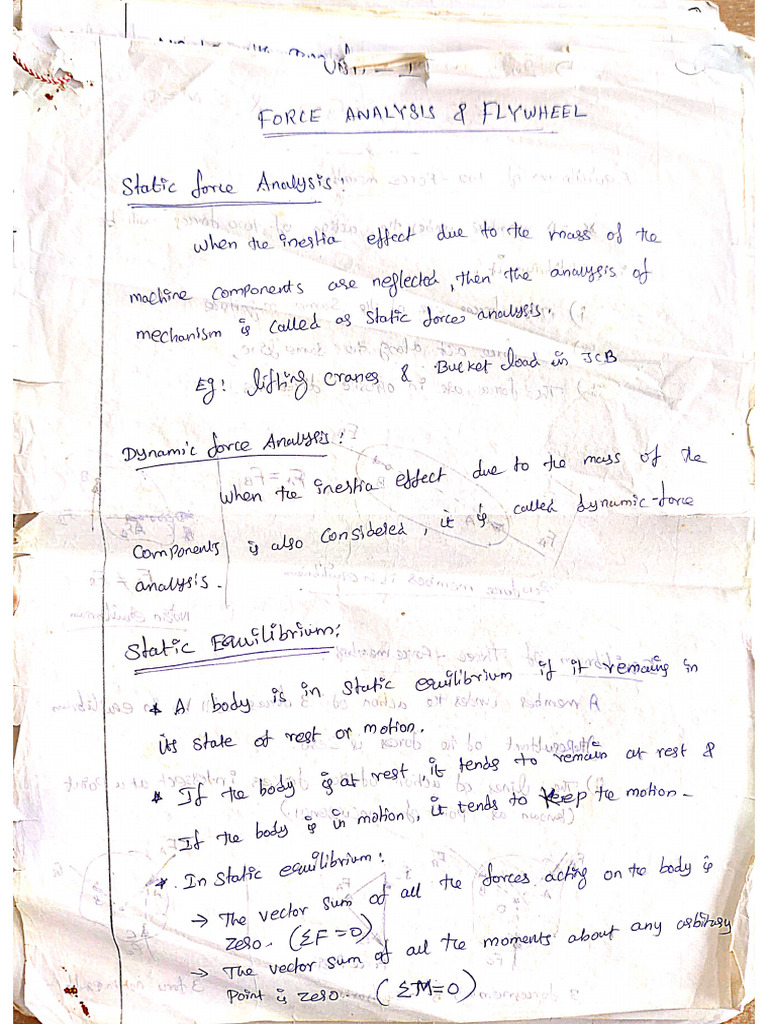 UNIT - II
FORCE ANALYSIS & FLYWHEEL
Static force Analysis:
When the inestia effect due to the mass of the
machine components are neglected, then the analysis of
mechanism is called as static force analysis.
Eg: lifting cranes & Bucket load in JCB
Dynamic force Analysis:
When the inestia effect due to the mass of the
components is also considered, it is called dynamic-force
analysis.
Static Equilibrium:
* A body is in static equilibrium if it remains in
its state of rest or motion.
* If the body is at rest, it tends to remain at rest &
If the body is in motion, it tends to keep the motion-
* In static equilibrium:
→ The vector sum of all the forces acting on the body is
zero- (ΣF=0)
→ The vector sum of all the moments about any arbitary
point is zero- (ΣM=0)